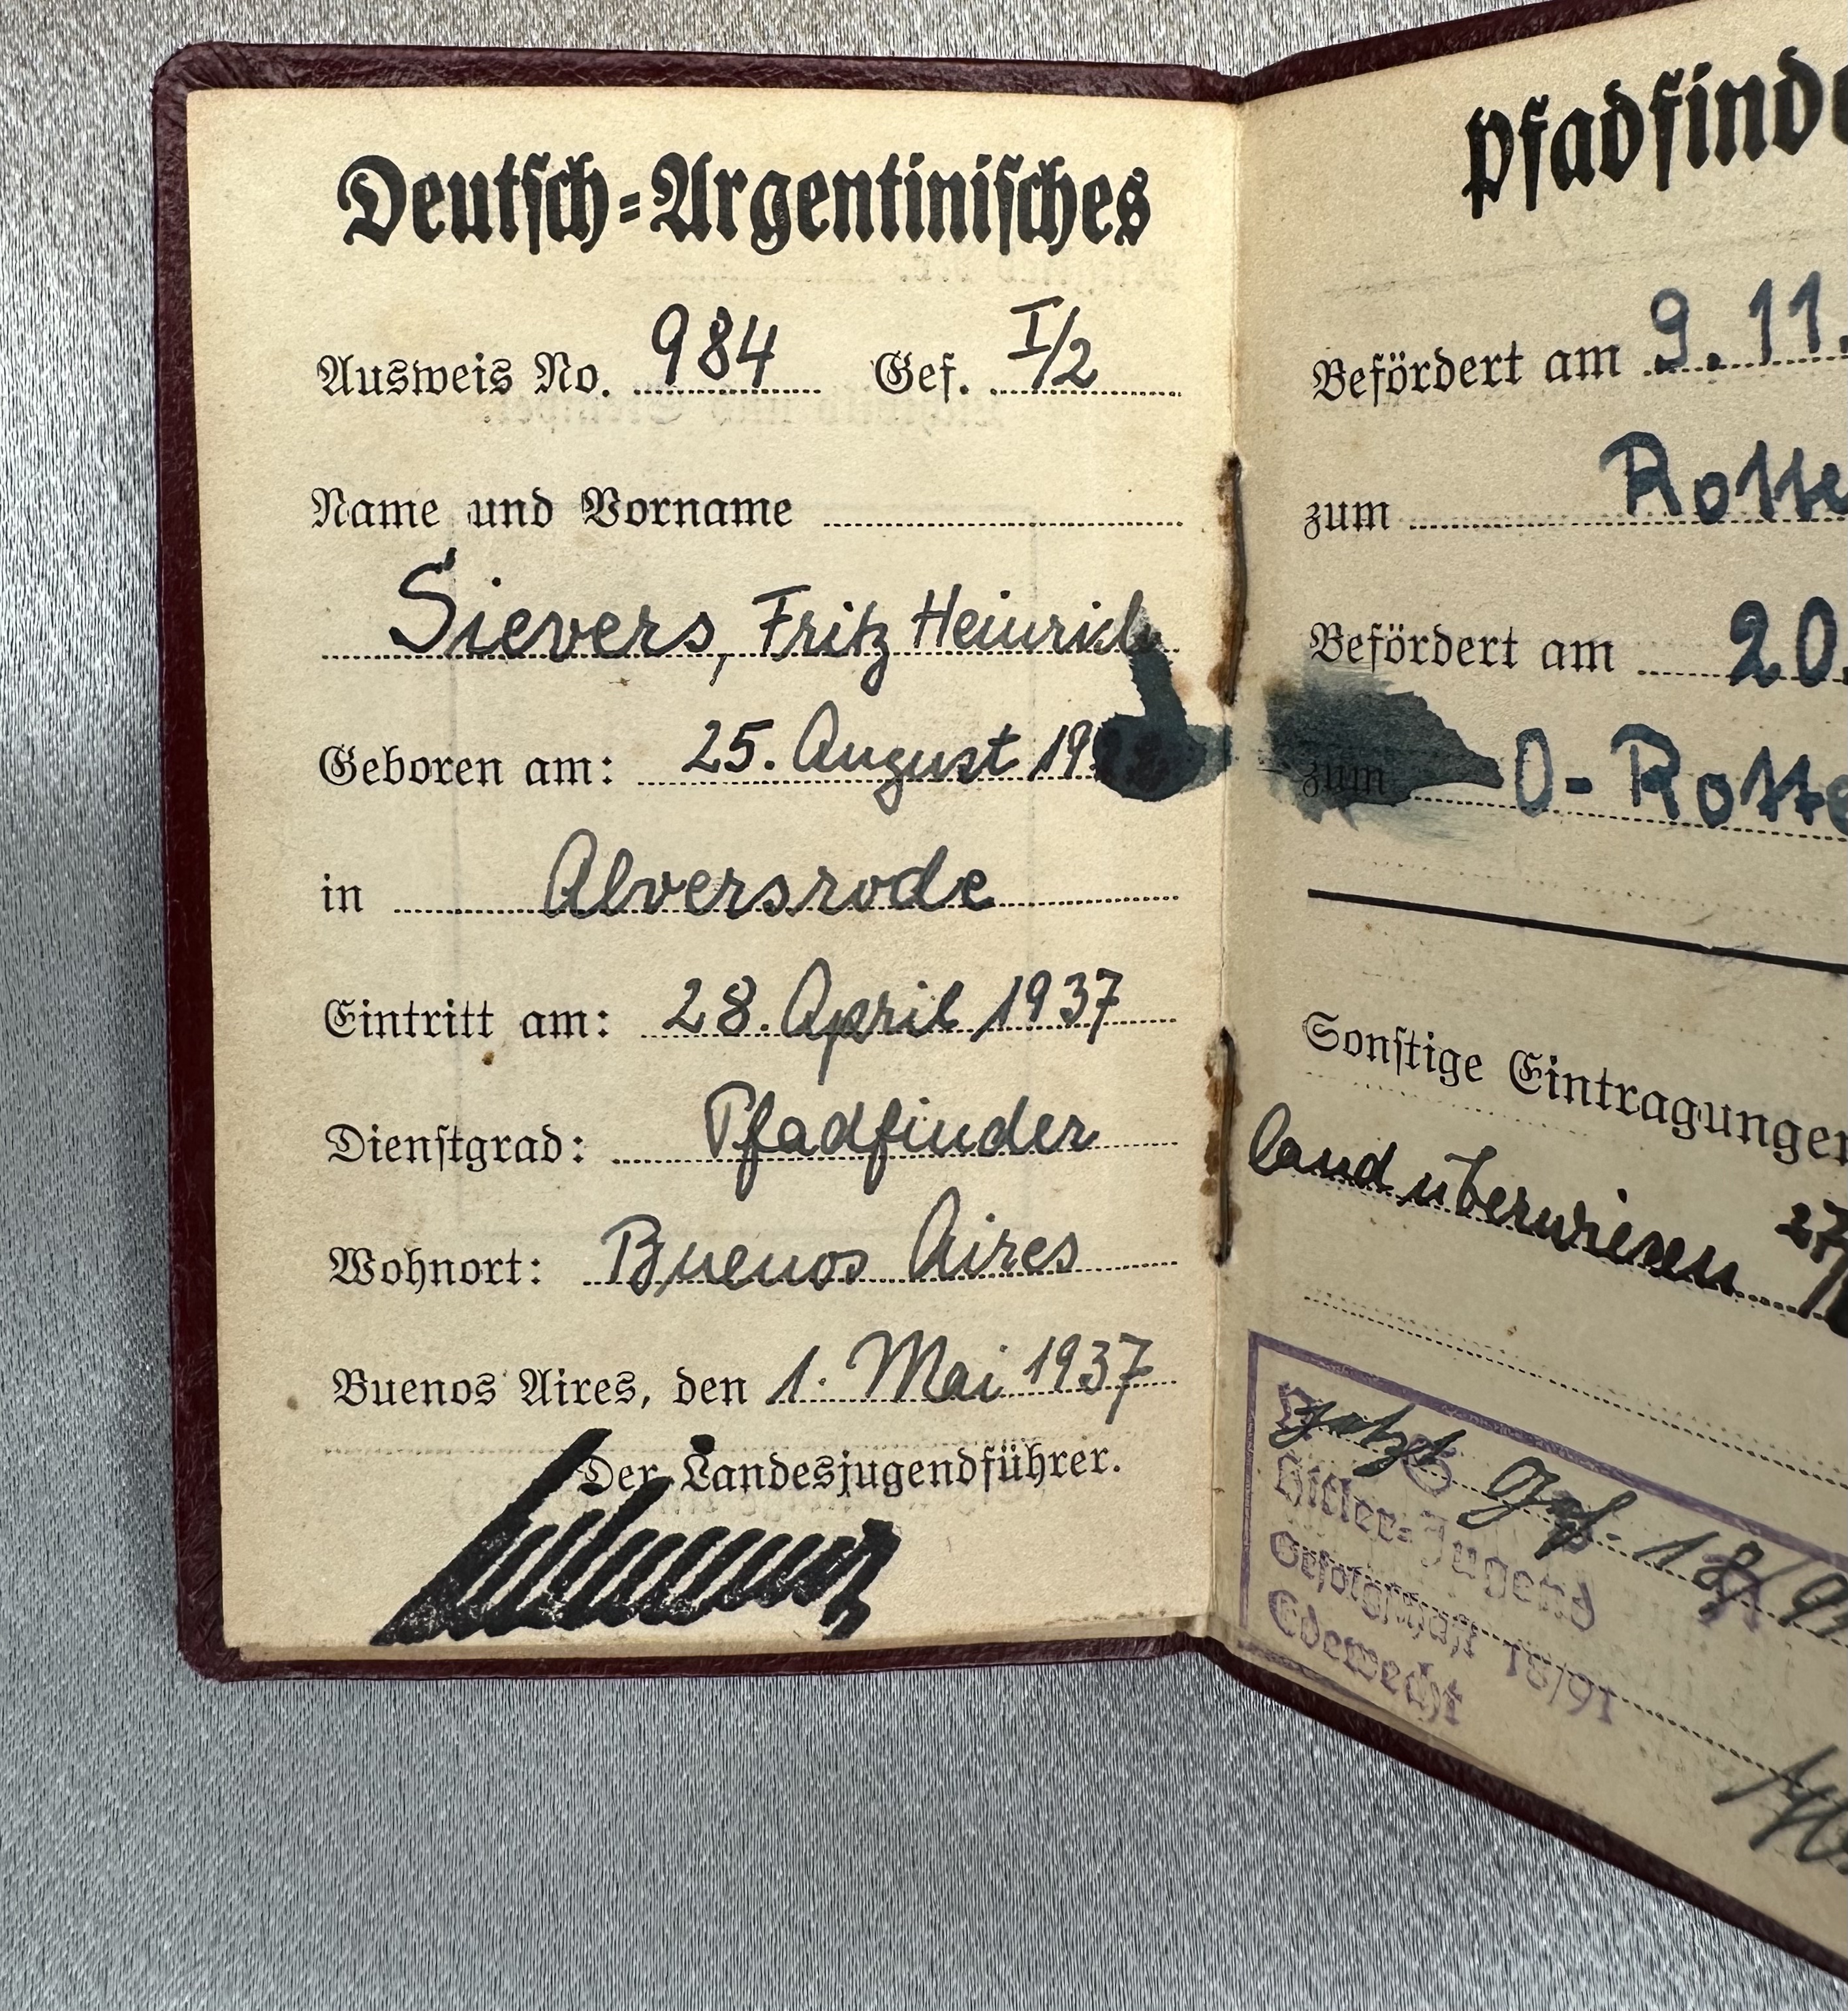 Deutsch-Argentinisches
Ausweis No. 984 Gef. I/2
Name und Vorname
Sievers, Fritz Heinrich
Geboren am: 25. August 19
in Alversrode
Eintritt am: 28. April 1937
Dienstgrad: Pfadfinder
Wohnort: Buenos Aires
Buenos Aires, den 1. Mai 1937
Der Landesjugendführer.
Pfadfinde
Befördert am 9. 11.
zum Rotte
Befördert am 20.
zum O-Rotte
Sonstige Eintragungen
land überwiesen 27/
jetzt Gef. 18/91
Hitler-Jugend
Gefolgschaft 18/91
Edewecht